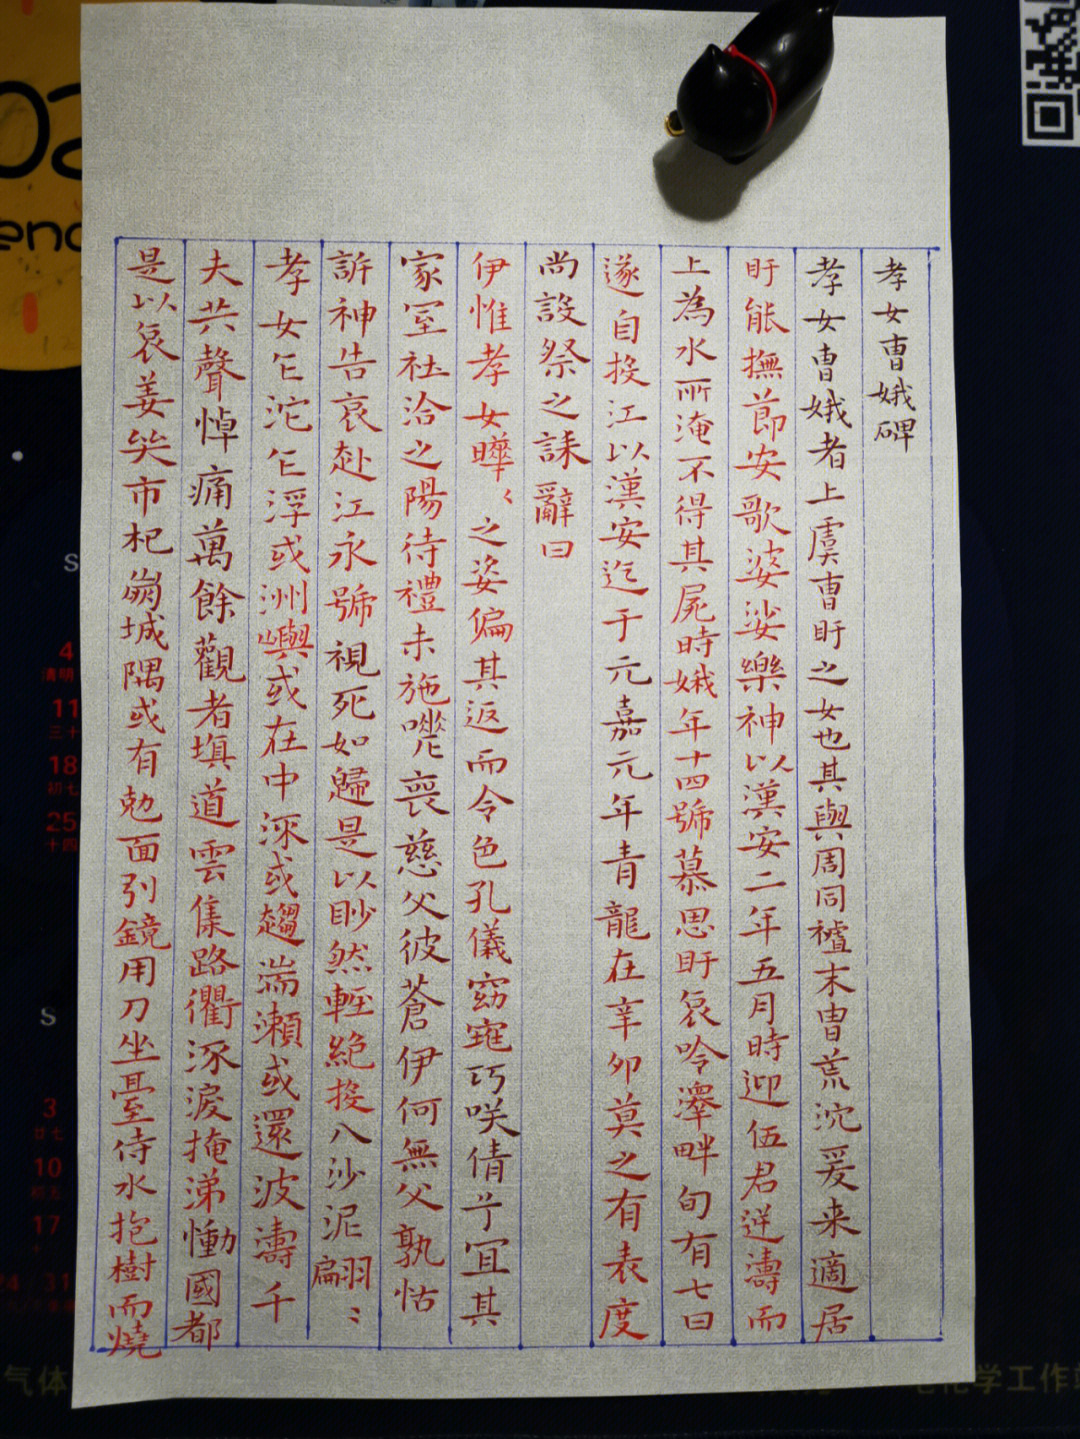 孝女曹娥碑
孝女曹娥者上虞曹盱之女也其與周同禠末曹荒沈爰来適居
盱能撫節安歌婆娑樂神以漢安二年五月時迎伍君逆濤而
上為水所淹不得其屍時娥年十四號慕思盱哀吟澤畔旬有七日
遂自投江以漢安迄于元嘉元年青龍在辛卯莫之有表度
尚設祭之誄辭曰
伊惟孝女曄〻之姿偏其返而令色孔儀窈窕巧咲倩兮宜其
家室在洽之陽待禮未施嗟喪慈父彼蒼伊何無父孰怙
訴神告哀赴江永號視死如歸是以眇然輕絕投入沙泥翩〻
孝女乍沱乍浮或洲嶼或在中流或趨湍瀨或還波濤千
夫共聲悼痛萬餘觀者填道雲集路衢流淚掩涕慟國都
是以哀姜哭市杞崩城隅或有勊面引鏡用刀坐臺待水抱樹而燒
02
4
清明
11
三十
18
初七
25
十四
S
S
3
廿七
10
初五
17
24/31
气体
学工作